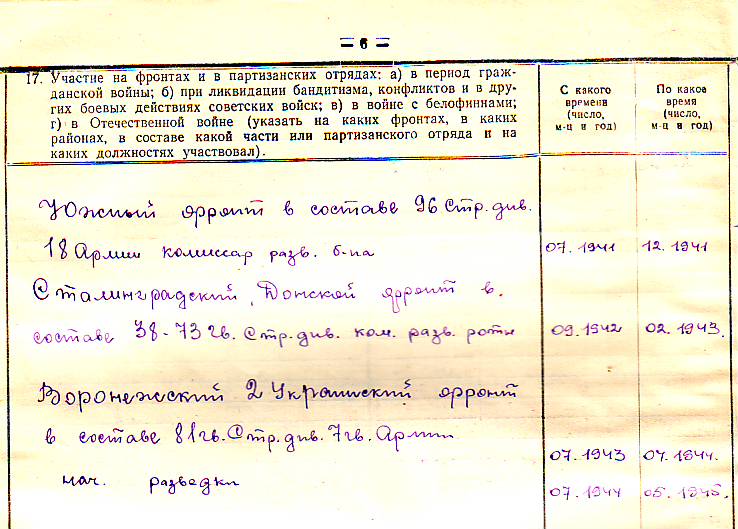 = 6 =
17. Участие на фронтах и в партизанских отрядах: а) в период граж-
данской войны; б) при ликвидации бандитизма, конфликтов и в дру-
гих боевых действиях советских войск; в) в войне с белофиннами;
г) в Отечественной войне (указать на каких фронтах, в каких
районах, в составе какой части или партизанского отряда и на
каких должностях участвовал).
С какого
времени
(число,
м-ц и год)
По какое
время
(число,
м-ц и год)
Южный фронт в составе 96 Стр. див.
18 Армии комиссар разв. б-на 07.1941 12.1941
Сталинградский, Донской фронт в
составе 38-73 гв. Стр. див. ком. разв. роты 09.1942 02.1943.
Воронежский 2 Украинский фронт
в составе 81 гв. Стр. див. 7 гв. Армии
07.1943 04.1944.
нач. разведки 07.1944 05.1945.